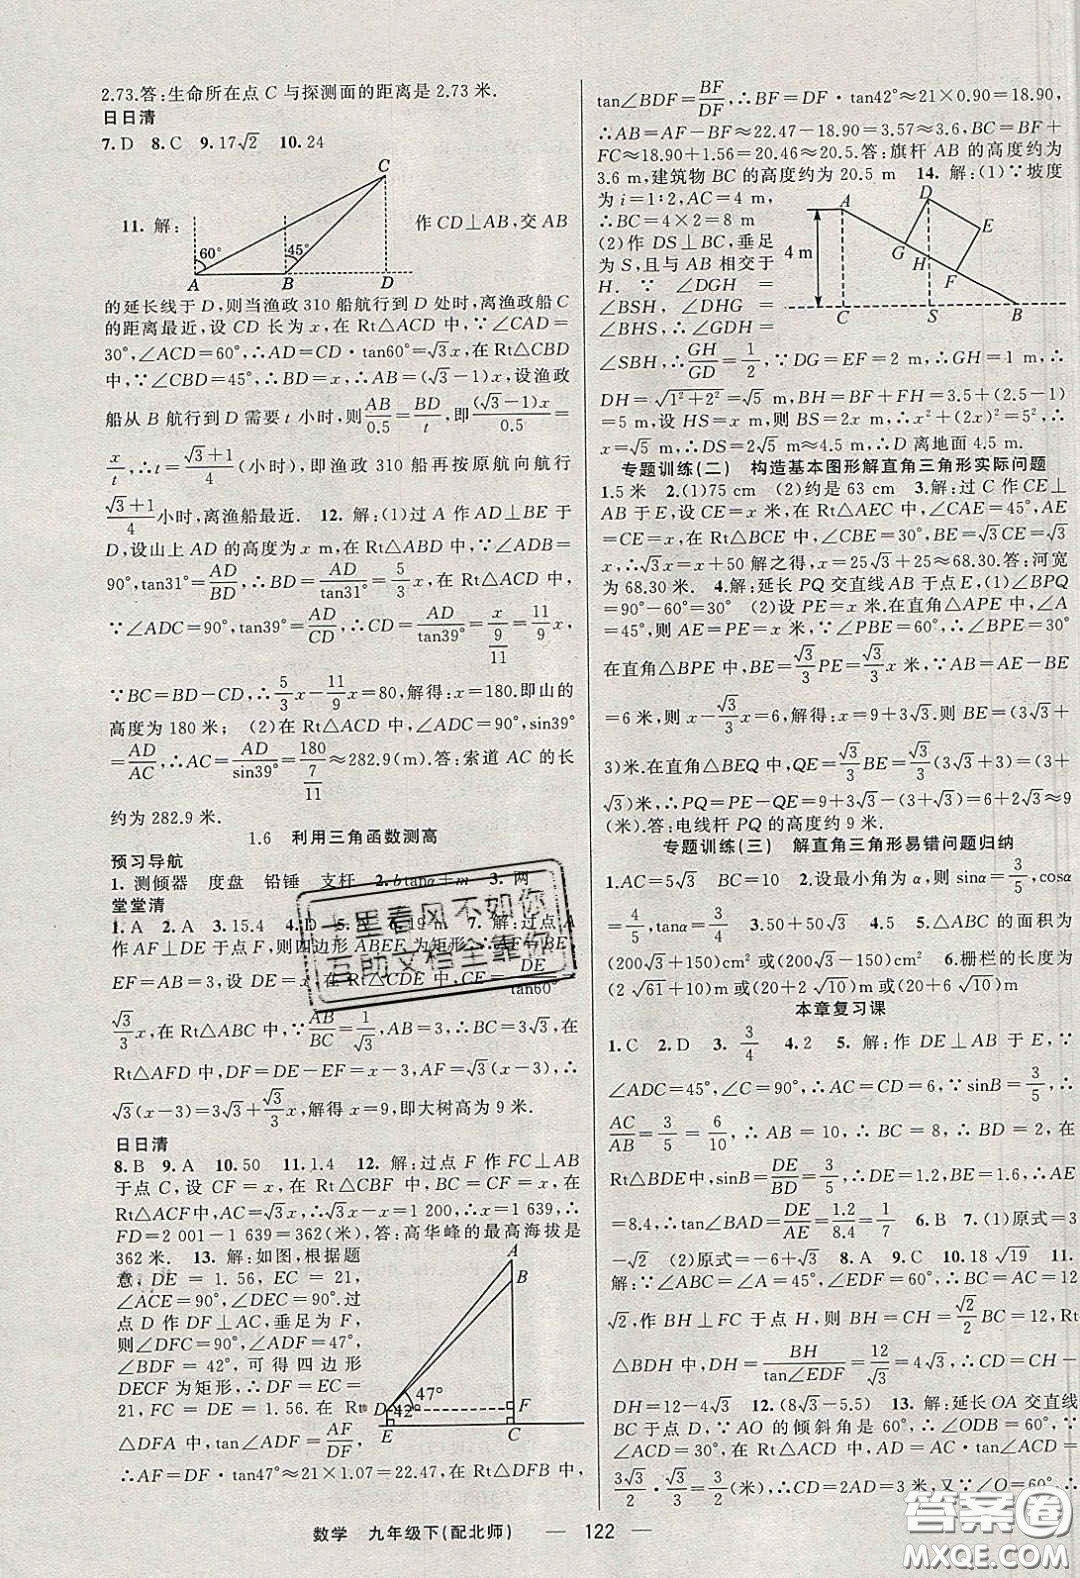 2.73.答:生命所在点 C 与探测面的距离是 2.73 米.
日日清
7.D 8.C 9.17√2 10.24
11. 解:
60° 45° A B C D
作 CD⊥AB,交 AB
的延长线于 D,则当渔政 310 船航行到 D 处时,离渔政船 C
的距离最近,设 CD 长为 x,在 Rt△ACD 中,∵∠CAD=
30°,∠ACD=60°,∴AD=CD·tan60°=√3x,在 Rt△CBD
中,∵∠CBD=45°,∴BD=x,∴AB=(√3-1)x,设渔政
船从 B 航行到 D 需要 t 小时,则AB/0.5=BD/t,即(√3-1)x/0.5=
x/t,∴t=(√3+1)/4(小时),即渔政 310 船再按原航向航行
(√3+1)/4小时,离渔船最近. 12. 解:(1)过 A 作 AD⊥BE 于
D,设山上 AD 的高度为 x m,在 Rt△ABD 中,∵∠ADB=
90°,tan31°=AD/BD,∴BD=AD/tan31°=5/3x,在 Rt△ACD 中,
∵∠ADC=90°,tan39°=AD/CD,∴CD=AD/tan39°=x/(9/11)=11/9x,
∵BC=BD-CD,∴5/3x-11/9x=80,解得:x=180.即山的
高度为 180 米; (2)在 Rt△ACD 中,∠ADC=90°,sin39°
=AD/AC,∴AC=AD/sin39°=180/(7/11)≈282.9(米).答:索道 AC 的长
约为 282.9 米.
1.6 利用三角函数测高
预习导航
1. 测倾器 度盘 铅锤 支杆 2.btanα+m 3. 两
堂堂清
1.A 2.A 3.15.4 4.D 7. 解:过点 A
作 AF⊥DE 于点 F,则四边形 ABEF 为矩形,∴AF=BE,
EF=AB=3,设 DE=x,在 Rt△CDE 中,CE=DE/tan60°=
√3/3x,在 Rt△ABC 中,∵AB/BC=1/√3,AB=3,∴BC=3√3,在
Rt△AFD 中,DF=DE-EF=x-3,
√3(x-3)=3√3+√3/3x,解得 x=9,即大树高为 9 米.
日日清
8.B 9.A 10.50 11.1.4 12. 解:过点 F 作 FC⊥AB
于点 C,设 CF=x,在 Rt△CBF 中,BC=CF=x,在
Rt△ACF中,AC=√3x,∴√3x-x=1 200,∴x=1 639,∴
FD=2 001-1 639=362(米),答:高华峰的最高海拔是
362 米. 13. 解:如图,根据题
意,DE=1.56,EC=21,
∠ACE=90°,∠DEC=90°.过
点 D 作 DF⊥AC,垂足为 F,
则∠DFC=90°,∠ADF=47°,
∠BDF=42°,可得四边形
DECF 为矩形,∴DF=EC=
21,FC=DE=1.56.在 Rt
△DFA 中,tan∠ADF=AF/DF,
A B D 47° 42° F E C
∴AF=DF·tan47°≈21×1.07=22.47,在Rt△DFB 中,
tan∠BDF=BF/DF,∴BF=DF·tan42°≈21×0.90=18.90,
∴AB=AF-BF≈22.47-18.90=3.57≈3.6,BC=BF+
FC≈18.90+1.56=20.46≈20.5.答:旗杆 AB 的高度约为
3.6 m,建筑物 BC 的高度约为 20.5 m 14. 解:(1)∵坡度
为 i=1:2,AC=4 m,
∴BC=4×2=8 m
(2)作 DS⊥BC,垂足
为 S,且与 AB 相交于
H. ∵∠DGH=
∠BSH,∠DHG=
∠BHS,∴∠GDH=
A D E G H F C S B 4 m
∠SBH,∴GH/GD=1/2,∵DG=EF=2 m,∴GH=1 m,∴
DH=√(1²+2²)=√5 m,BH=BF+FH=3.5+(2.5-1)
=5 m,设 HS=x m,则 BS=2x m,∴x²+(2x)²=5²,∴
x=√5 m,∴DS=2√5 m≈4.5 m,∴D 离地面 4.5 m.
专题训练(二) 构造基本图形解直角三角形实际问题
1.5 米 2.(1)75 cm (2)约是 63 cm 3.解:过 C 作 CE⊥
AB 于 E,设 CE=x 米,在 Rt△AEC 中,∠CAE=45°,AE
=CE=x,在 Rt△BCE 中,∠CBE=30°,BE=√3CE=√3
x,∴√3x=x+50 解之得,x=25√3+25≈68.30.答:河宽
为 68.30 米. 4.解:延长 PQ 交直线 AB 于点 E,(1)∠BPQ
=90°-60°=30° (2)设 PE=x 米.在直角△APE 中,∠A
=45°,则 AE=PE=x 米;∵∠PBE=60°,∴∠BPE=30°
在直角△BPE 中,BE=√3/3PE=√3/3x 米,∵AB=AE-BE
=6米,则 x-√3/3x=6,解得:x=9+3√3.则 BE=(3√3+
3)米.在直角△BEQ 中,QE=√3/3BE=√3/3(3√3+3)=(3+
√3)米,∴PQ=PE-QE=9+3√3-(3+√3)=6+2√3≈9
(米).答:电线杆 PQ 的高度约 9 米.
专题训练(三) 解直角三角形易错问题归纳
1.AC=5√3 BC=10 2.设最小角为 α,则 sinα=3/5,cosα
=4/5,tanα=3/4 3.3/4或√7/3 4.5 5.△ABC 的面积为
(200√3+150)cm² 或(200√3-150)cm² 6.栅栏的长度为
(2√61+10)m 或(20+2√10)m 或(20+6√10)m
本章复习课
1.C 2.D 3. 3/4 4.2 5. 解:作 DE⊥AB 于 E,∵
∠ADC=45°,∠C=90°,∴AC=CD=6,∵sinB=
AC/AB=3/5=6/10,∴AB=10,∴BC=8,∴BD=2,在
Rt△BDE中,sinB=DE/BD=3/5,∴DE=1.2,BE=1.6,∴AE
=8.4,∴tan∠BAD=DE/AE=1.2/8.4=1/7 6.B 7.(1)原式=3
-√2 (2)原式=-6+√3 8.A 9.C 10.18√19 11.
解:∵∠ABC=∠A=45°,∠EDF=60°,∴BC=AC=12
√2,作 BH⊥FC 于点 H,则 BH=CH=√2/2BC=12,Rt
△BDH 中,DH=BH/tan∠EDF=12/√3=4√3,∴CD=CH-
DH=12-4√3 12.(8√3-5.5) 13. 解:延长 OA 交直线
BC 于点 D,∵AO 的倾斜角是 60°,∴∠ODB=60°,∵
3√3/2·√3/3=3/2(米),∴CD=2AD=3 米,又∵∠O=60°,
数学 九年级下(配北师) — 122 —
十里春风不如你
互助文档全靠你
答案圈
MXQE.COM